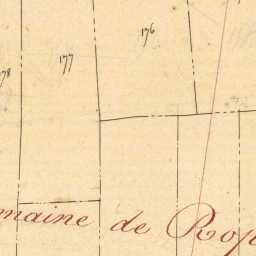 176
177
178
maine de Rop